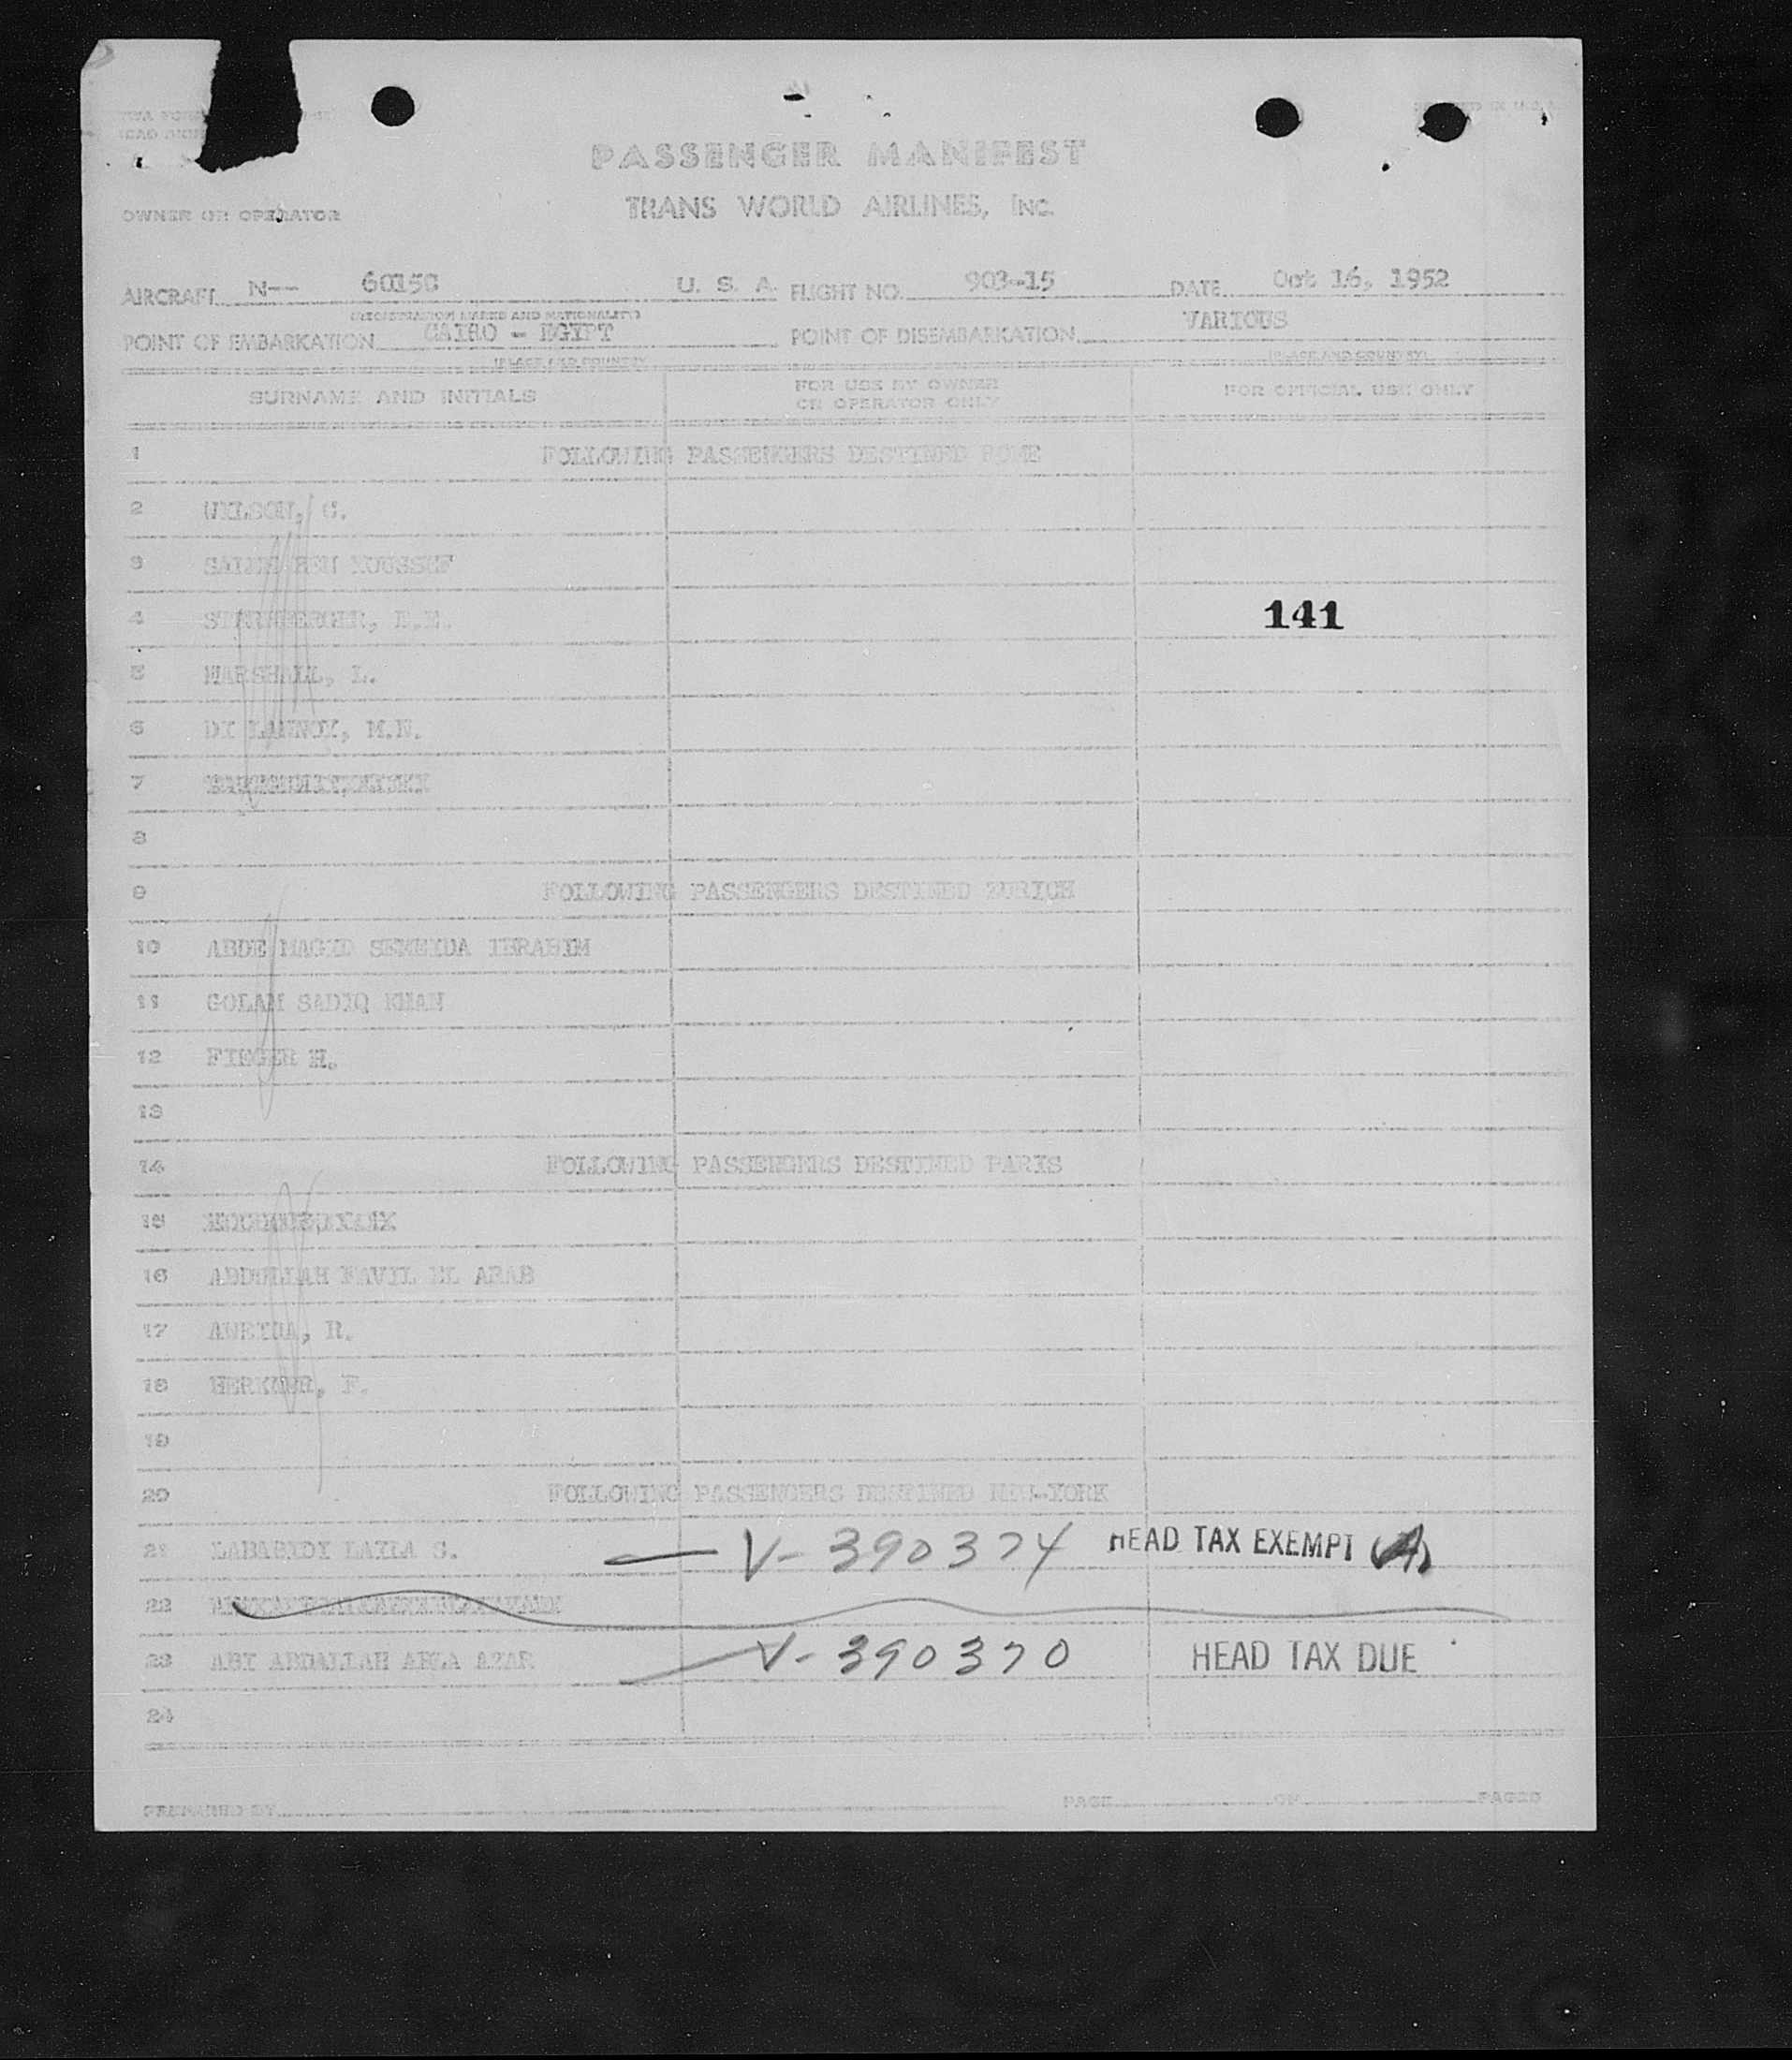 PASSENGER MANIFEST
TRANS WORLD AIRLINES, INC.
OWNER OR OPERATOR
AIRCRAFT N-- 6015C U. S. A. FLIGHT NO. 903-15 DATE Oct 16, 1952
(REGISTRATION MARKS AND NATIONALITY)
POINT OF EMBARKATION CAIRO - EGYPT POINT OF DISEMBARKATION VARIOUS
(PLACE AND COUNTRY) (PLACE AND COUNTRY)
SURNAME AND INITIALS FOR USE BY OWNER OR OPERATOR ONLY FOR OFFICIAL USE ONLY
1 FOLLOWING PASSENGERS DESTINED ROME
2 WILSON, C.
3 BEN YOUSSEF
4 141
5 MARSHALL, L.
6 DE LANNOY, M.N.
7
8
9 FOLLOWING PASSENGERS DESTINED ZURICH
10 ABDE MAGID SEMEIDA IBRAHIM
11 GOLAM SADIQ KHAN
12 FIEGER H.
13
14 FOLLOWING PASSENGERS DESTINED PARIS
15
16 ABDULLAH EL ARAB
17 AWEIDA, R.
18 F.
19
20 FOLLOWING PASSENGERS DESTINED NEW-YORK
21 LABABIDY LAILA S. V-390374 HEAD TAX EXEMPT
22
23 ABI ABDALLAH AZAR V-390370 HEAD TAX DUE
24
PREPARED BY PAGE OF PAGES